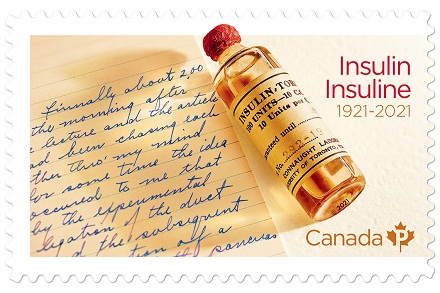 Finnally about 2.00
the morning after
e lecture and the article
ad been chasing each
ther thro' my mind
for some time the idea
occured to me that
by the experimental
ligation of the duct
d the subsequent
tion of a
the pancreas
INSULIN-TOR
100 UNITS—10 C
10 Units per c
CONNAUGHT LABOR
UNIVERSITY OF TORONTO,
©2021
Insulin
Insuline
1921-2021
Canada P